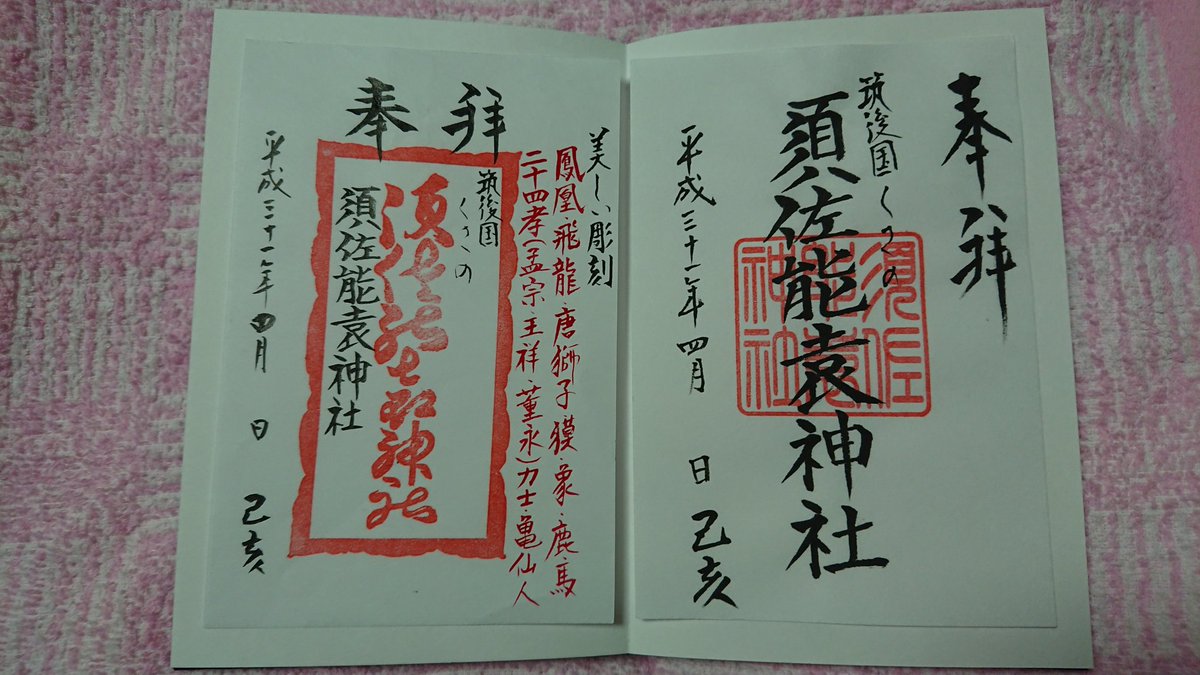 奉拝
筑後国くさの
須佐能袁神社
須佐
神社
平成三十一年四月 日 己亥
美しい彫刻
鳳凰・飛龍・唐獅子・獏・象・鹿・馬
二十四孝(孟宗・王祥・董永)力士・亀仙人
拝
奉
筑後国くさの
須佐能袁神社
平成三十一年四月 日 己亥